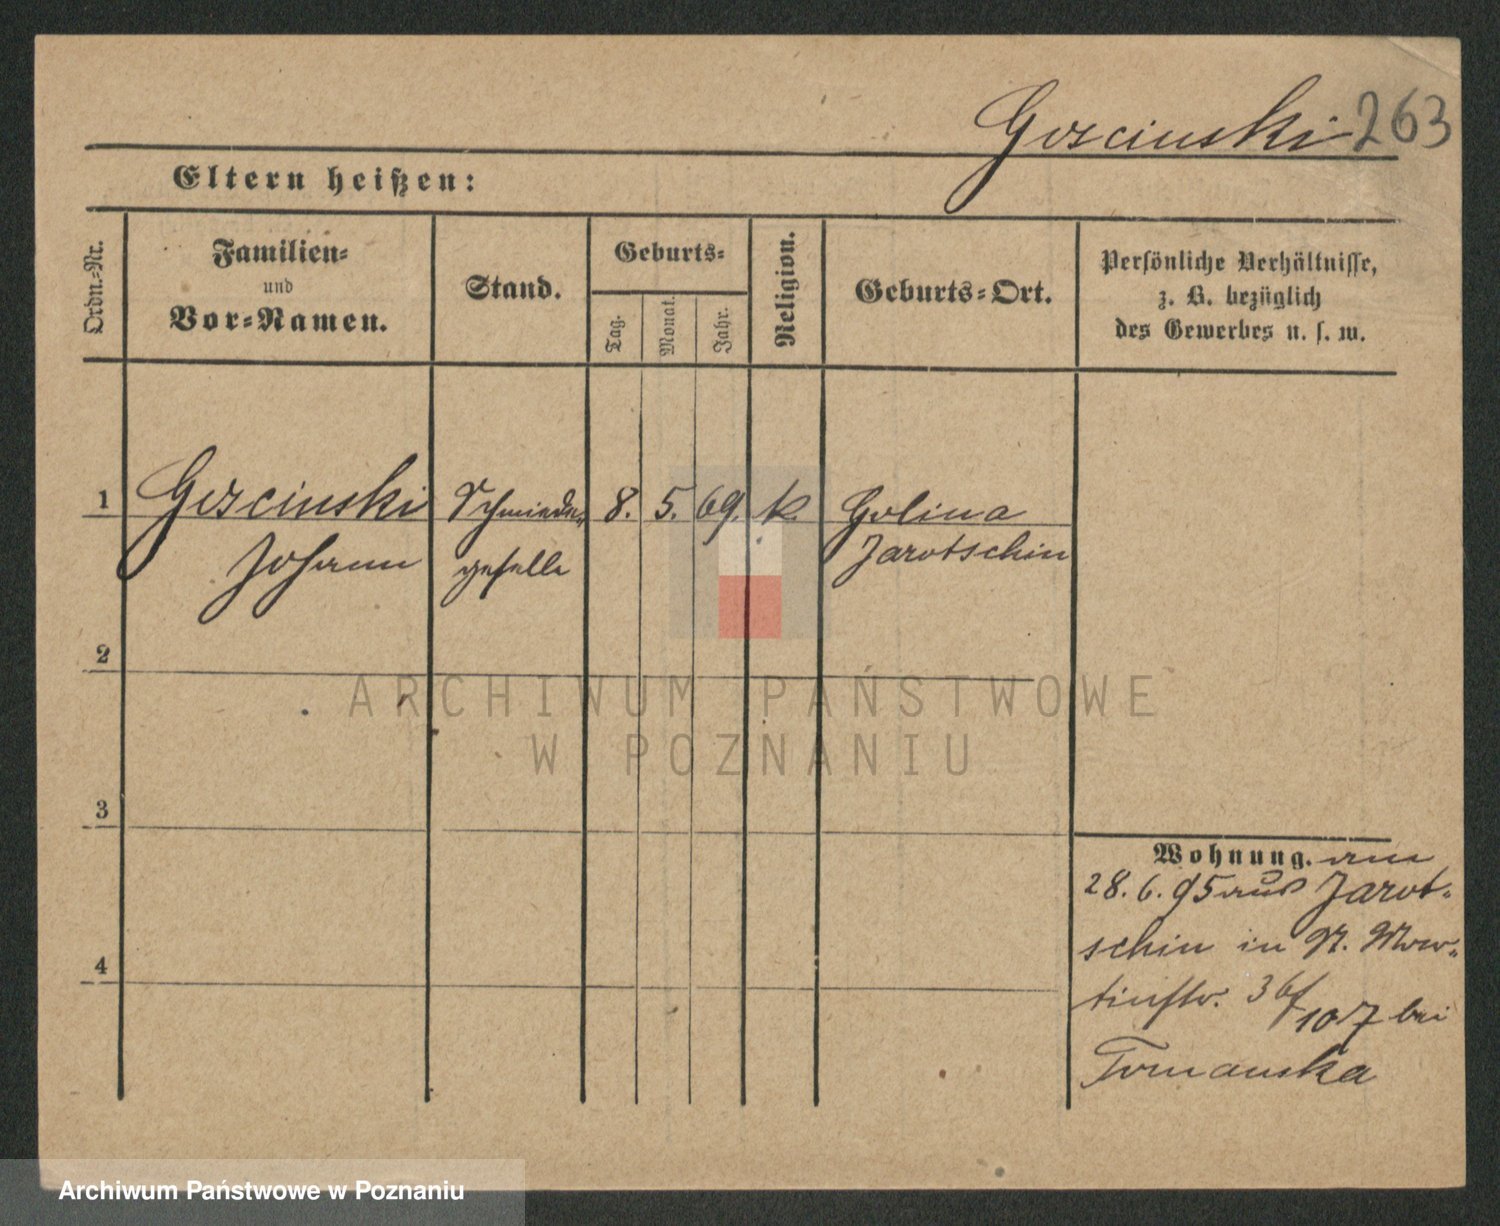 Goscinski 263
Eltern heißen:
Ordn.-Nr.
Familien-
und
Vor-Namen.
Stand.
Geburts-
Tag.
Monat.
Jahr.
Religion.
Geburts-Ort.
Persönliche Verhältnisse,
z. B. bezüglich
des Gewerbes u. s. w.
1 Goscinski Schmiede- 8. 5. 69. k. Golina
Johann geselle Jarotschin
2
ARCHIWUM PAŃSTWOWE
W POZNANIU
3
Wohnung. am
28. 6. 95 aus Jarot-
schin in St. Mar-
tinstr. 36/107 bei
Tomanska
4
Archiwum Państwowe w Poznaniu